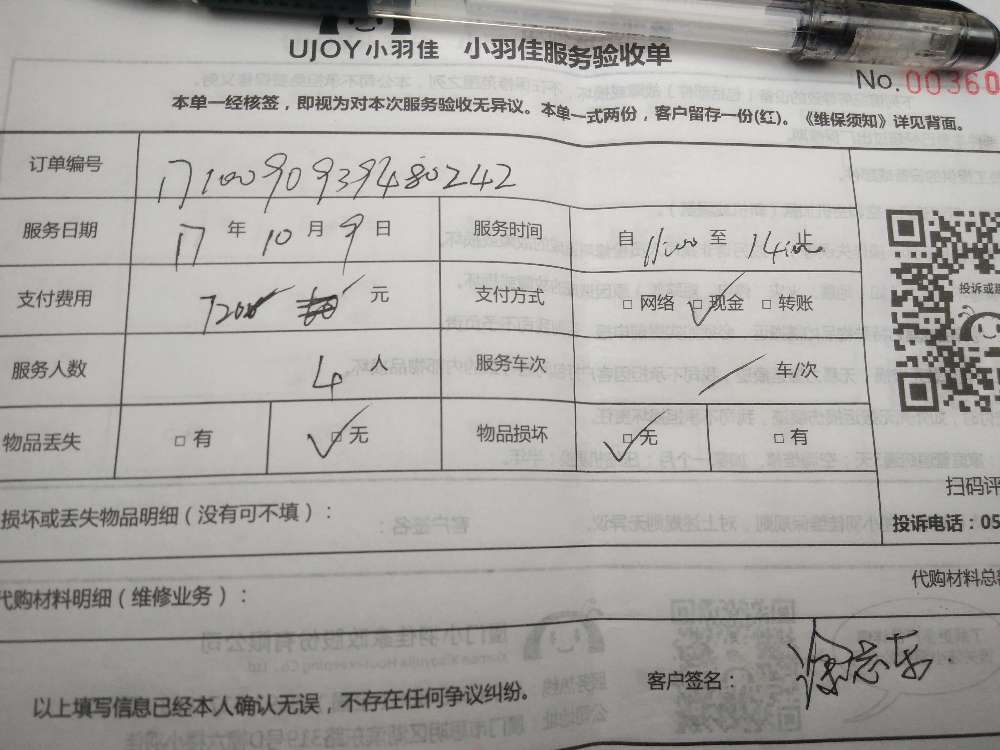 UJOY小羽佳 小羽佳服务验收单
No. 00360
本单一经核签，即视为对本次服务验收无异议。本单一式两份，客户留存一份(红)。《维保须知》详见背面。
订单编号 171009093948 0242
服务日期 17 年 10 月 9 日 服务时间 自 11:00 至 14:00 止
支付费用 720 元 支付方式 □网络 □现金 □转账
投诉或
服务人数 4 人 服务车次 / 车/次
物品丢失 □有 □无 物品损坏 □无 □有
扫码评
损坏或丢失物品明细（没有可不填）：
投诉电话：05
代购材料明细（维修业务）：
代购材料总
以上填写信息已经本人确认无误，不存在任何争议纠纷。 客户签名：